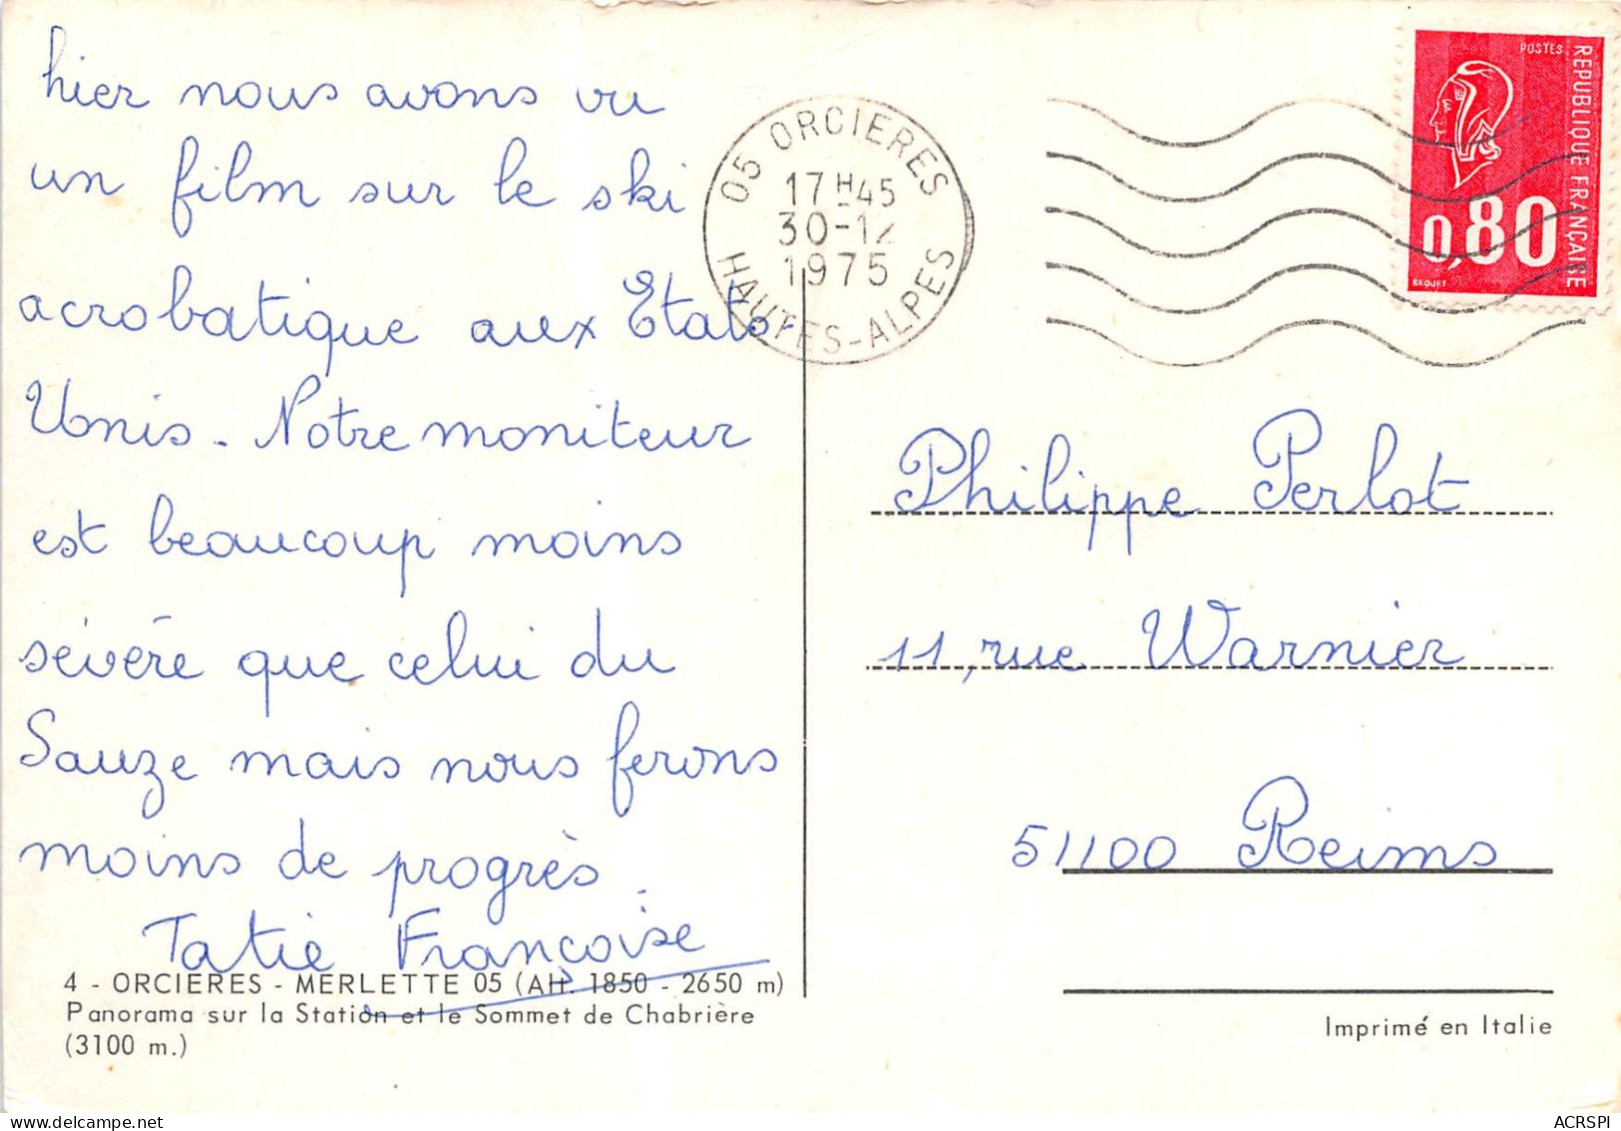 hier nous avons vu
un film sur le ski
acrobatique aux Etats-
Unis. Notre moniteur
est beaucoup moins
sévère que celui du
Sauze mais nous ferons
moins de progrès.
Tatie Françoise
4 - ORCIERES - MERLETTE 05 (Alt. 1850 - 2650 m)
Panorama sur la Station et le Sommet de Chabrière
(3100 m.)
05 ORCIERES
17H45
30-12
1975
HAUTES-ALPES
POSTES
REPUBLIQUE FRANÇAISE
0,80
BEQUET
Philippe Perlot
11, rue Warnier
51100 Reims
Imprimé en Italie
ACRSPI